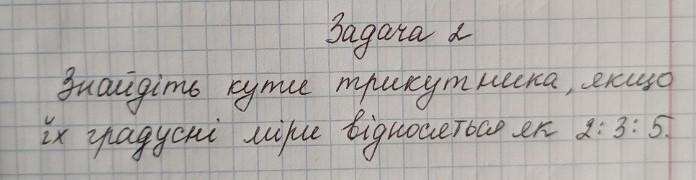 Задача 2
Знайдіть кути трикутника, якщо
їх градусні міри відносяться як 2:3:5.